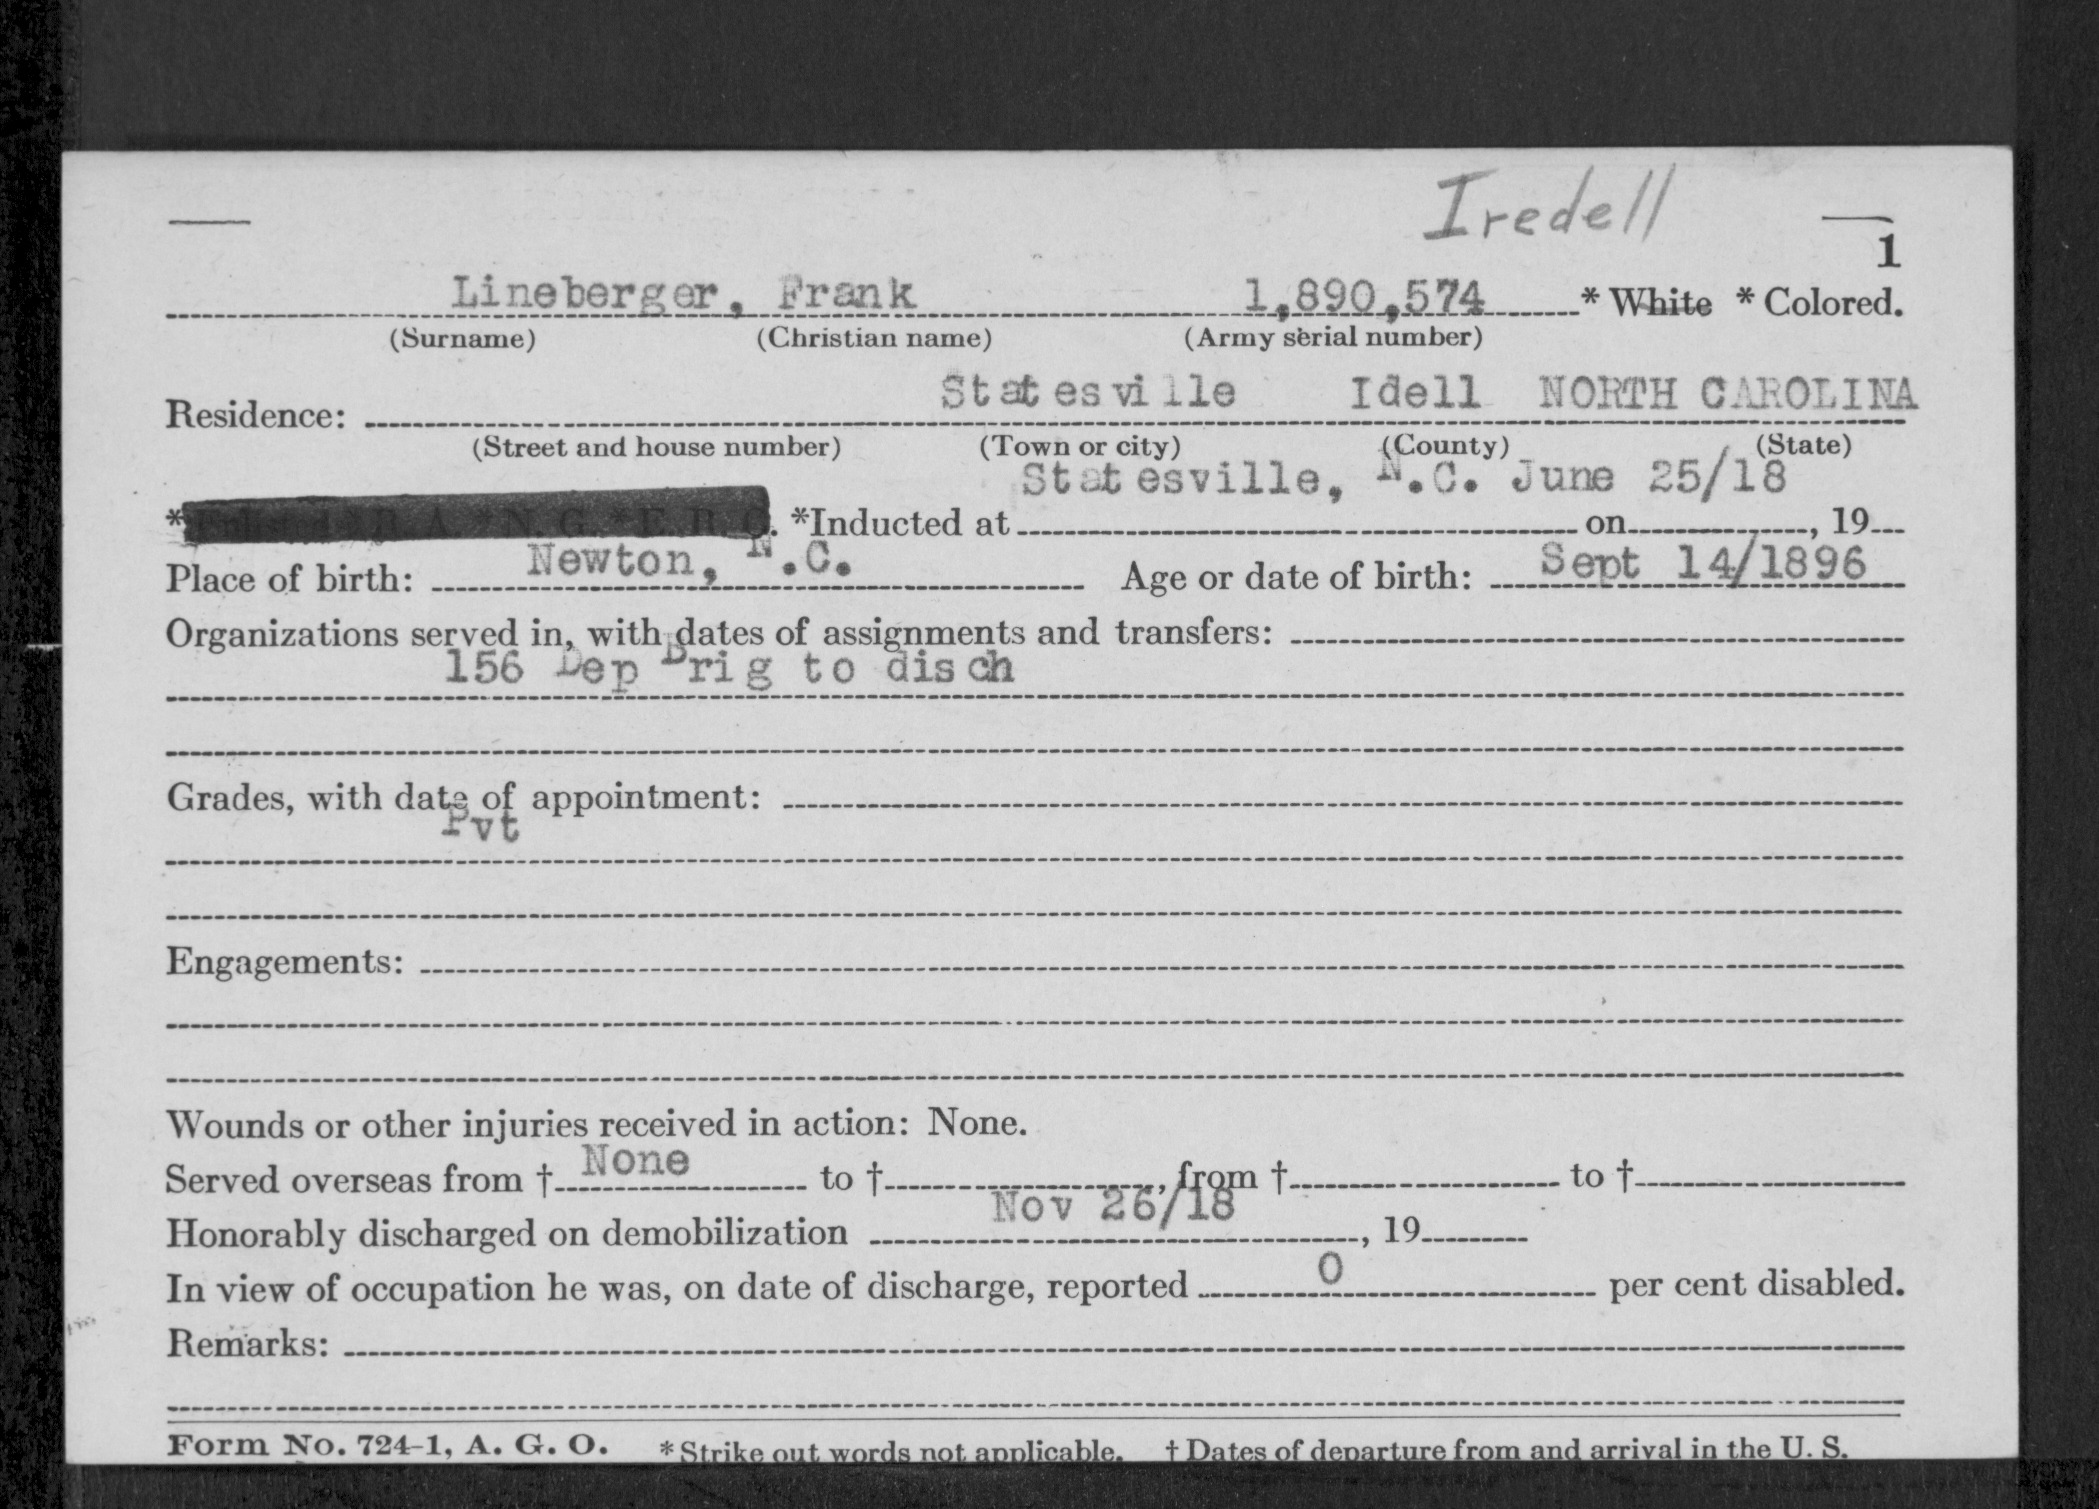 Iredell
1
Lineberger, Frank 1,890,574 * White * Colored.
(Surname) (Christian name) (Army serial number)
Residence: Statesville Idell NORTH CAROLINA
(Street and house number) (Town or city) (County) (State)
Statesville, N.C. June 25/18
* Enlisted * R. A. * N. G. * E. R. C. *Inducted at on , 19
Place of birth: Newton, N.C. Age or date of birth: Sept 14/1896
Organizations served in, with dates of assignments and transfers:
156 Dep Brig to disch
Grades, with date of appointment:
Pvt
Engagements:
Wounds or other injuries received in action: None.
Served overseas from † None to † , from † to †
Honorably discharged on demobilization Nov 26/18 , 19
In view of occupation he was, on date of discharge, reported 0 per cent disabled.
Remarks:
Form No. 724-1, A. G. O. * Strike out words not applicable. † Dates of departure from and arrival in the U. S.